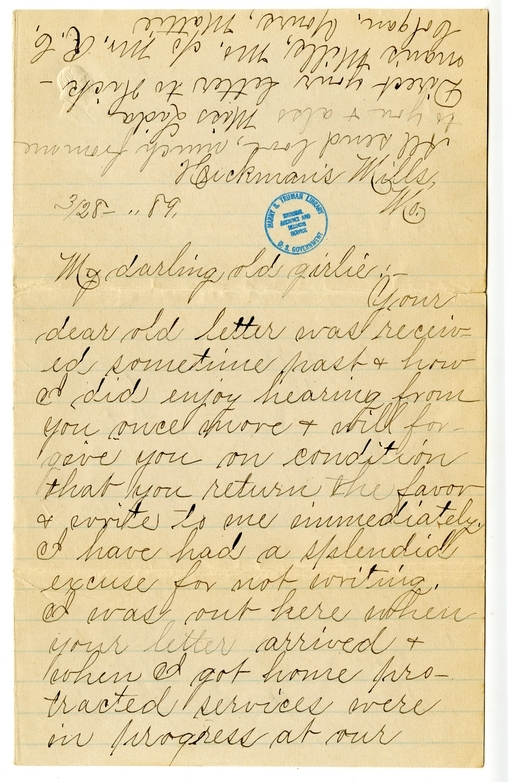 Hickman's Mills,
Mo.
3/28- " 89.
HARRY S. TRUMAN LIBRARY
NATIONAL
ARCHIVES AND
RECORDS
SERVICE
U. S. GOVERNMENT
My darling old girlie;-
Your
dear old letter was receiv-
ed sometime past & how
I did enjoy hearing from
you once more & will for-
give you on condition
that you return the favor
& write to me immediately.
I have had a splendid
excuse for not writing.
I was out here when
your letter arrived &
when I got home pro-
tracted services were
in progress at our
All send love, much from me
to you & also Miss Lida
Direct your letter to Hick-
man's Mills, Mo. c/o Mr. R. C.
Colgan. Yours, Mattie